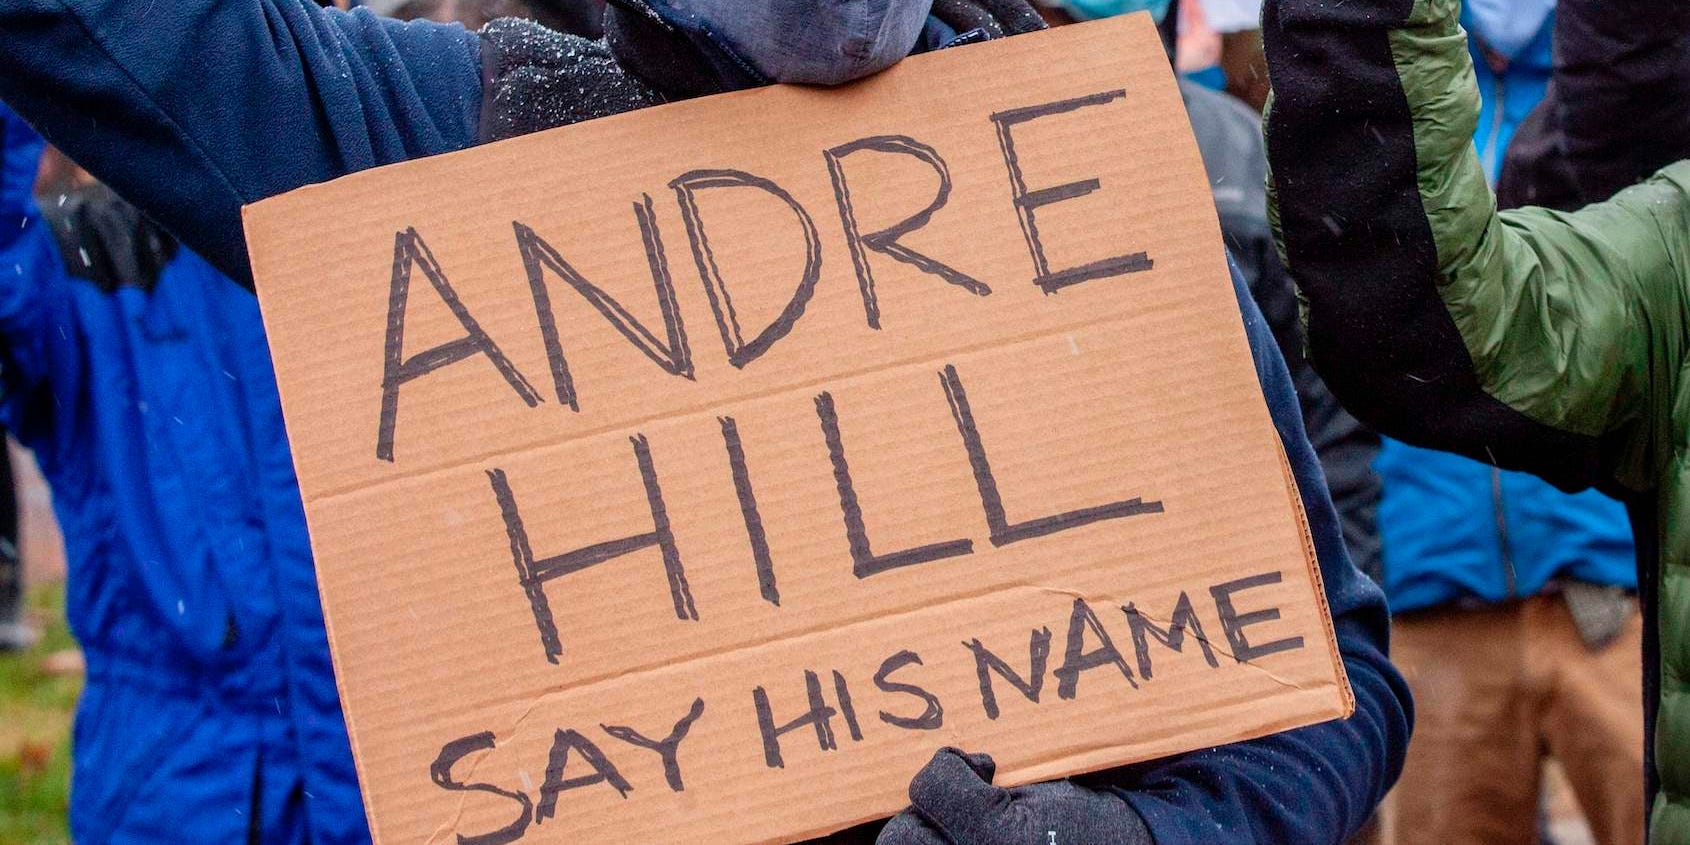 ANDRE
HILL
SAY HIS NAME